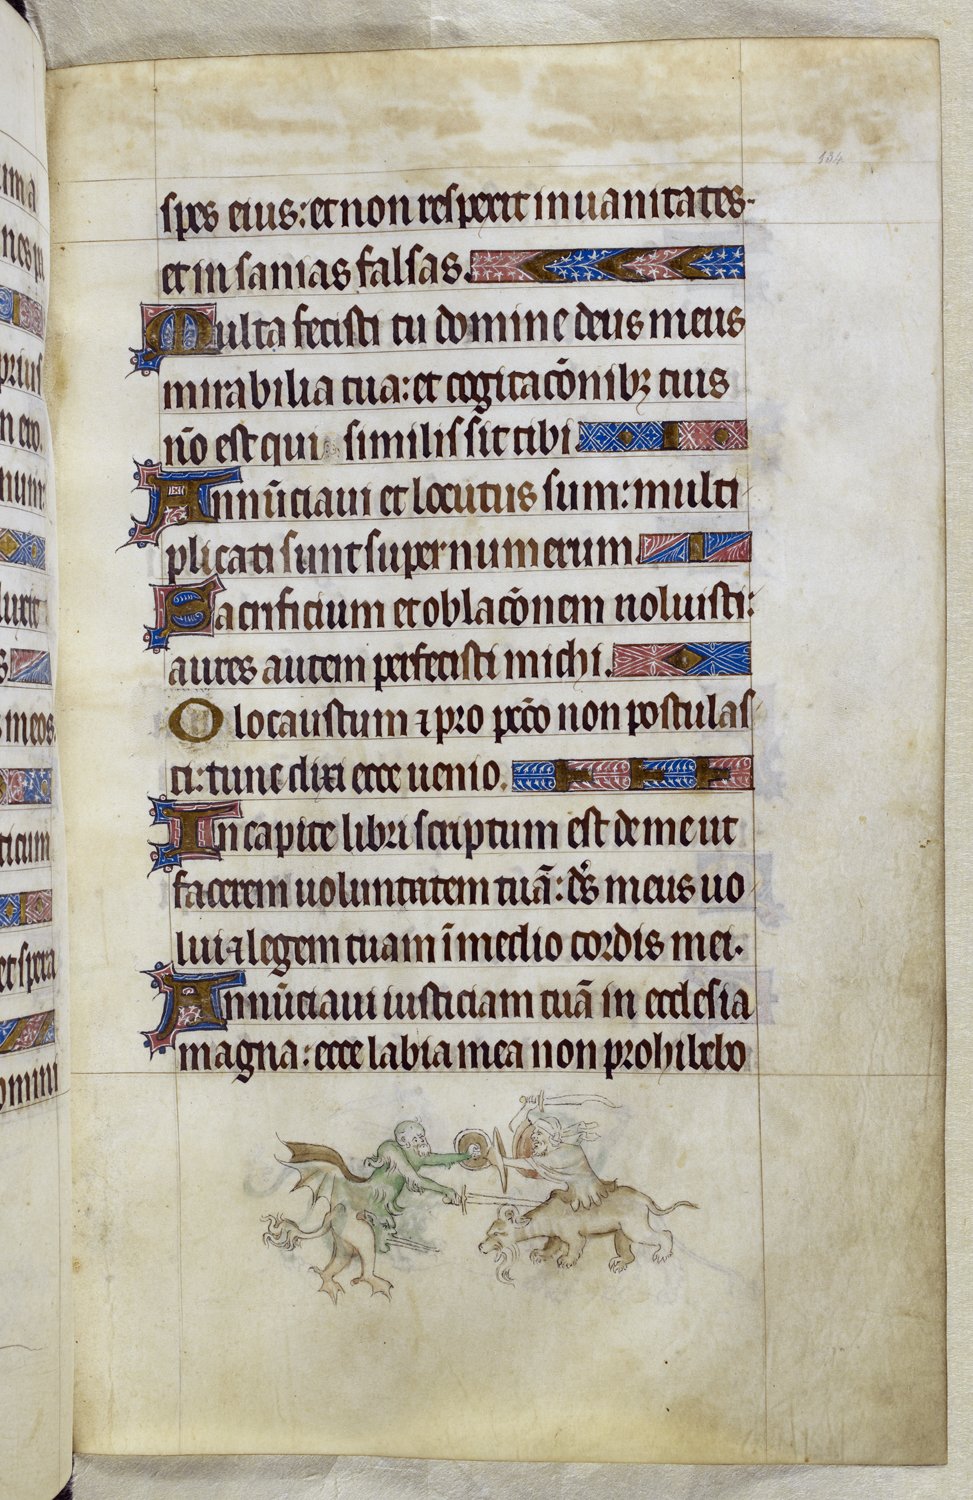 134
spes eius: et non respexit in uanitates
et insanias falsas.
Multa fecisti tu domine deus meus
mirabilia tua: et cogitacõnibꝫ tuis
nõ est qui similis sit tibi
Annũciaui et locutus sum: multi
plicati sunt super numerum
Sacrificium et oblacõnem noluisti:
aures autem perfecisti michi.
Olocaustum ⁊ pro pcc̃o non postulas
ti: tunc dixi ecce uenio.
In capite libri scriptum est de me ut
facerem uoluntatem tuã: ds̃ meus uo
lui ⁊ legem tuam ĩ medio cordis mei.
Annũciaui iusticiam tuã in ecclesia
magna: ecce labia mea non prohibebo